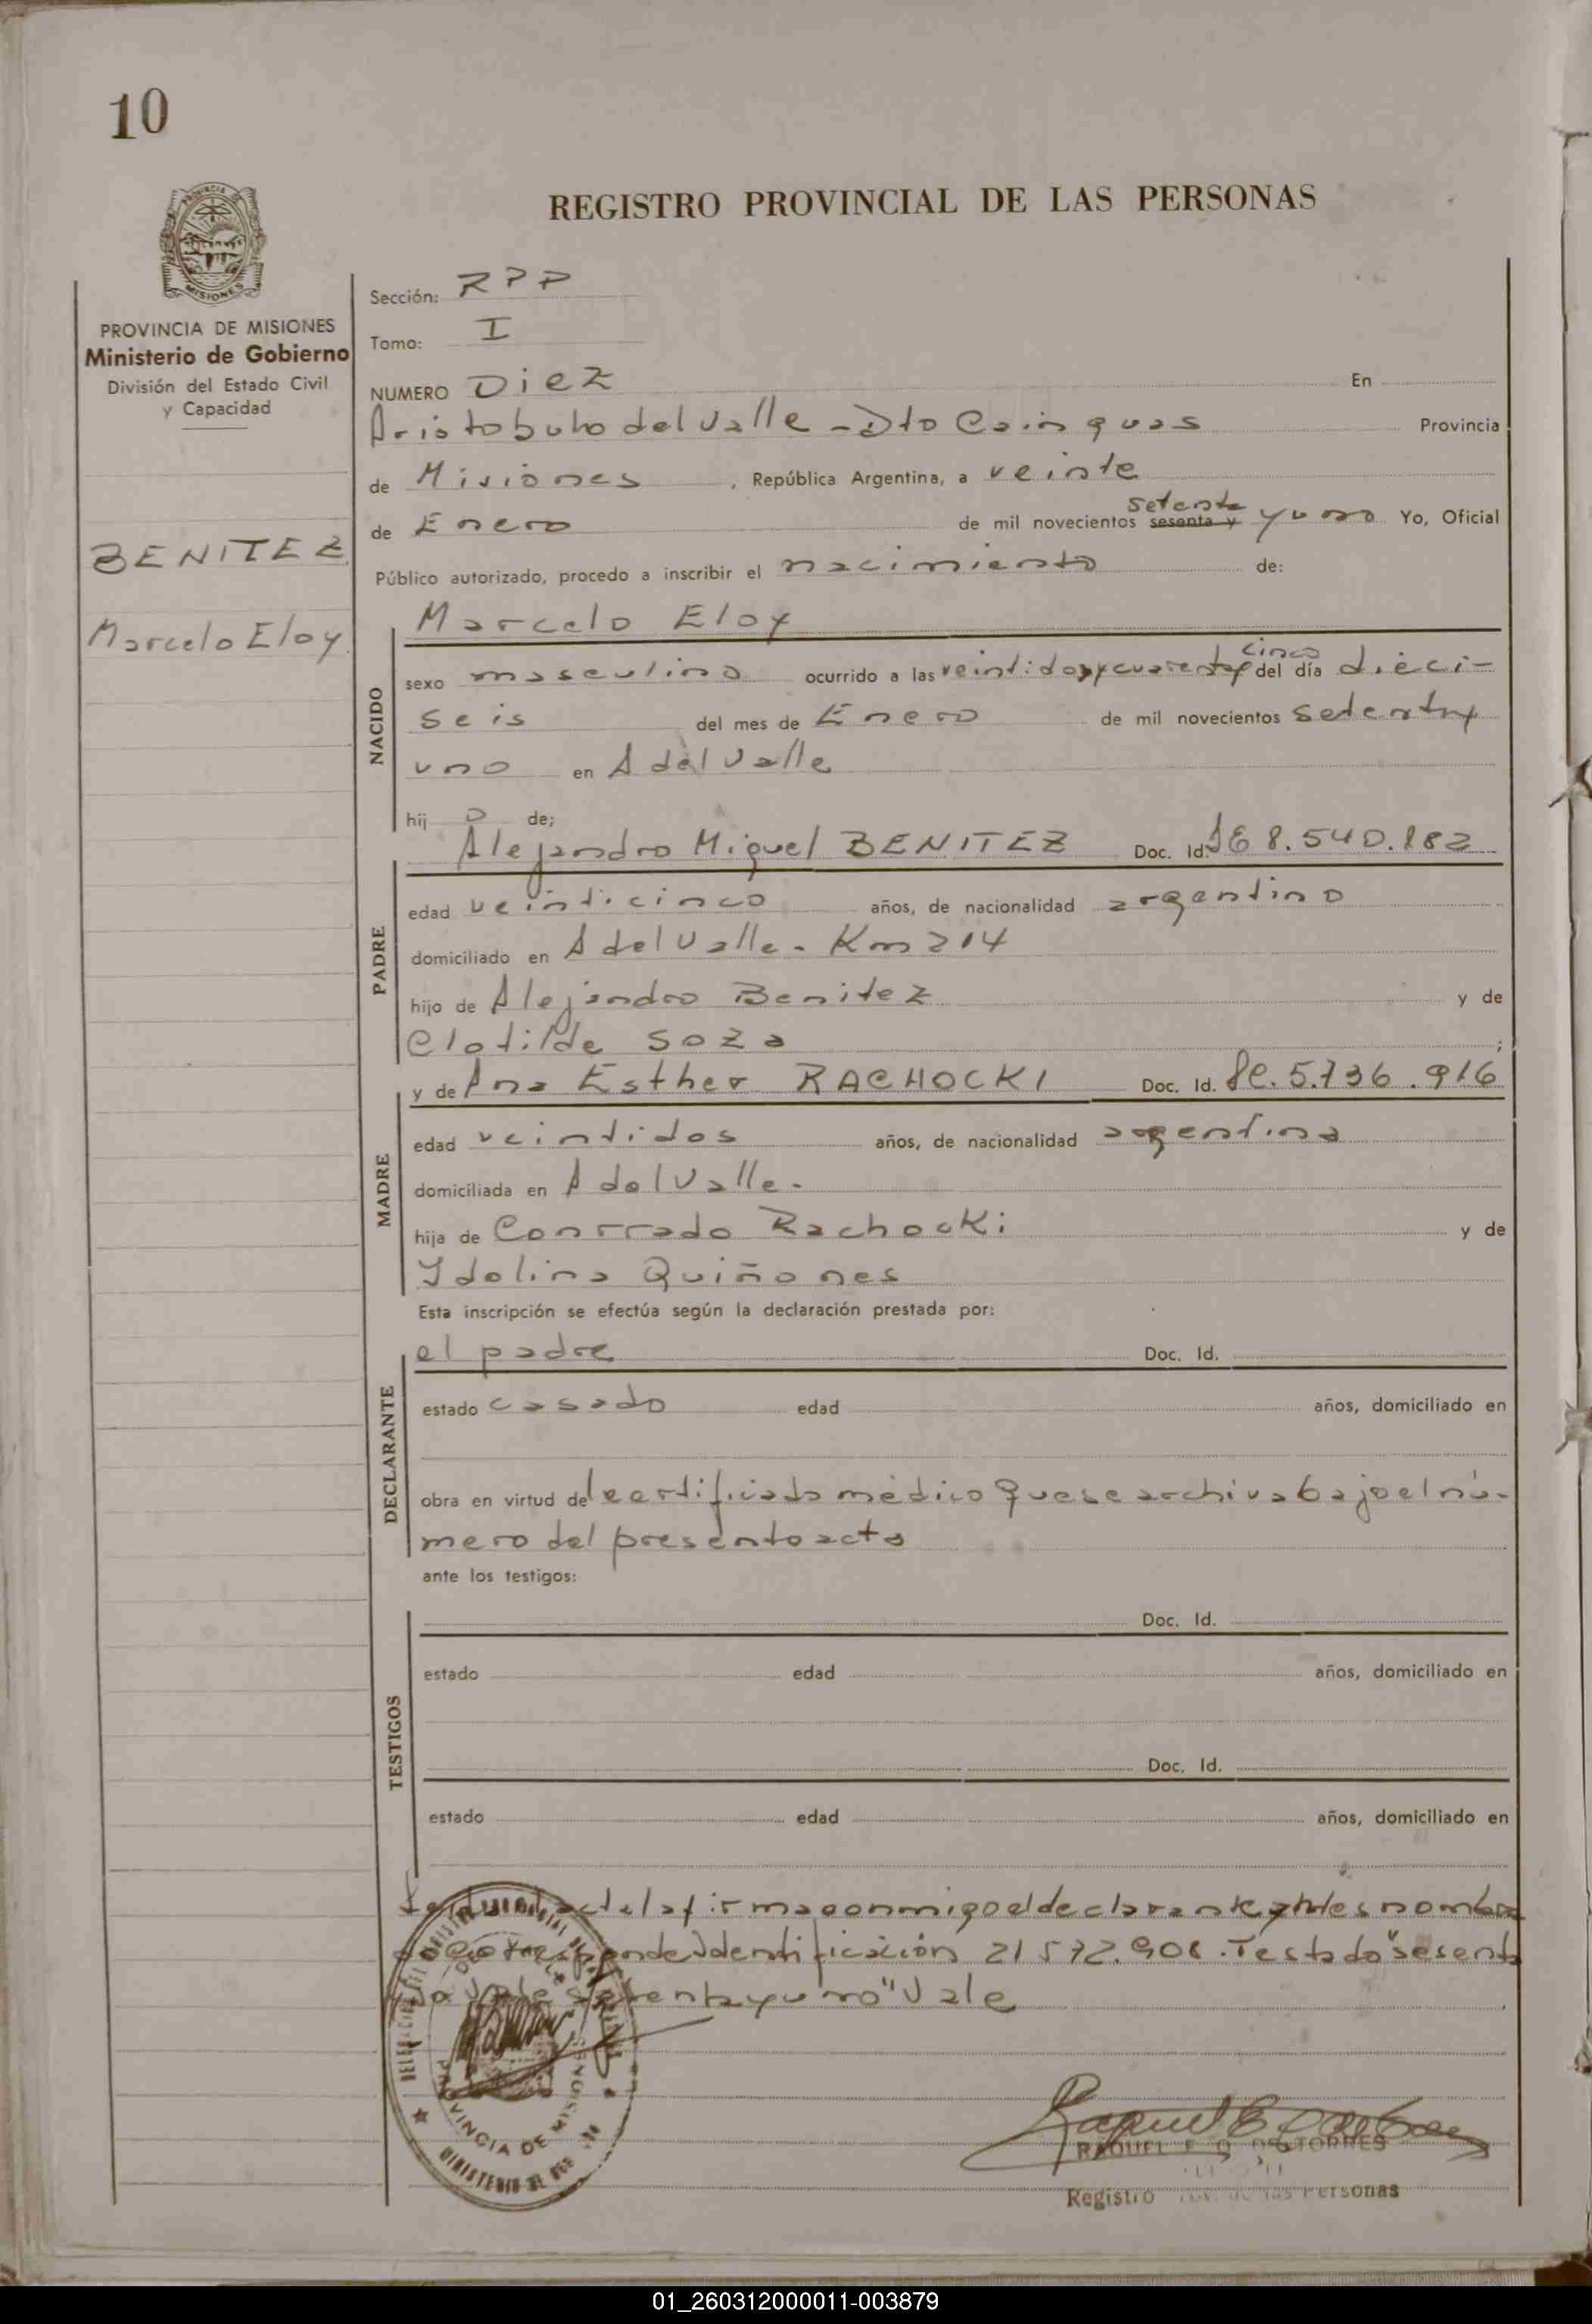 10
REGISTRO PROVINCIAL DE LAS PERSONAS
PROVINCIA DE MISIONES
Ministerio de Gobierno
División del Estado Civil
y Capacidad
BENITEZ
Marcelo Eloy
Sección: RPP
Tomo: I
NUMERO Diez En
Aristobulo del Valle - Dto Cainguas Provincia
de Misiones, República Argentina, a veinte
setenta
de Enero de mil novecientos sesenta y y uno Yo, Oficial
Público autorizado, procedo a inscribir el nacimiento de:
Marcelo Eloy
NACIDO
cinco
sexo masculino ocurrido a las veintidos y cuarenta y del día dieci-
seis del mes de Enero de mil novecientos setenta y
uno en A del Valle
hijo de;
Alejandro Miguel BENITEZ Doc. Id. 8.540.182
PADRE
edad veinticinco años, de nacionalidad argentino
domiciliado en A del Valle - Km 214
hijo de Alejandro Benitez y de
Clotilde Soza ;
y de Ana Esther RACHOCKI Doc. Id. 5.736.916
MADRE
edad veintidos años, de nacionalidad argentina
domiciliada en A del Valle.
hija de Conrrado Rachocki y de
Ydolina Quiñones
Esta inscripción se efectúa según la declaración prestada por:
el padre Doc. Id.
DECLARANTE
estado casado edad años, domiciliado en
obra en virtud del certificado médico que se archiva bajo el nú-
mero del presente acta
ante los testigos:
Doc. Id.
TESTIGOS
estado edad años, domiciliado en
Doc. Id.
estado edad años, domiciliado en
acta la firma conmigo el declarante
Identificación 21 572.908. Testado "sesenta
setenta y uno" Vale
PROVINCIA DE MISIONES
RAQUEL E. Q. DE TORRES
Registro de las Personas
01_260312000011-003879